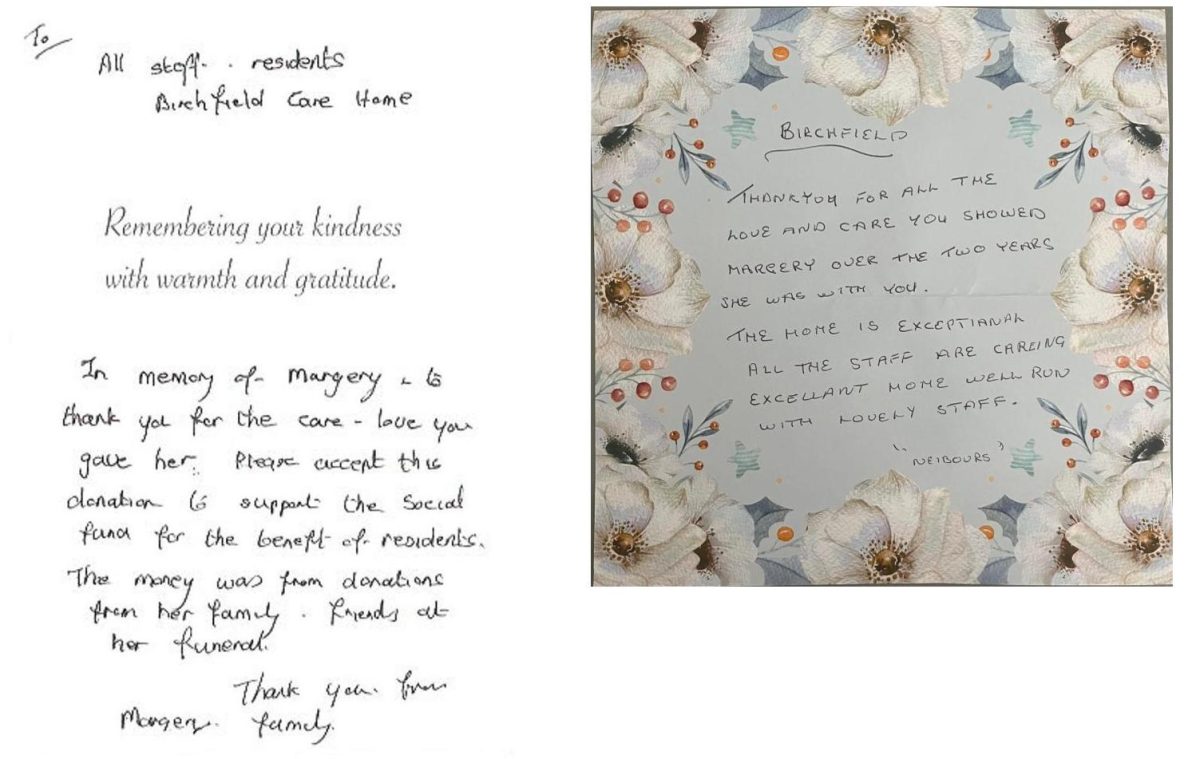 To
All staff . residents
Birchfield Care Home
Remembering your kindness
with warmth and gratitude.
In memory of Margery & to
thank you for the care - love you
gave her. Please accept this
donation to support the Social
fund for the benefit of residents.
The money was from donations
from her family . friends at
her funeral.
Thank you. from
Margery. family.
BIRCHFIELD
THANKYOU FOR ALL THE
LOVE AND CARE YOU SHOWED
MARGERY OVER THE TWO YEARS
SHE WAS WITH YOU.
THE HOME IS EXCEPTIANAL
ALL THE STAFF ARE CAREING
EXCELLANT HOME WELL RUN
WITH LOVELY STAFF.
"NEIBOURS"